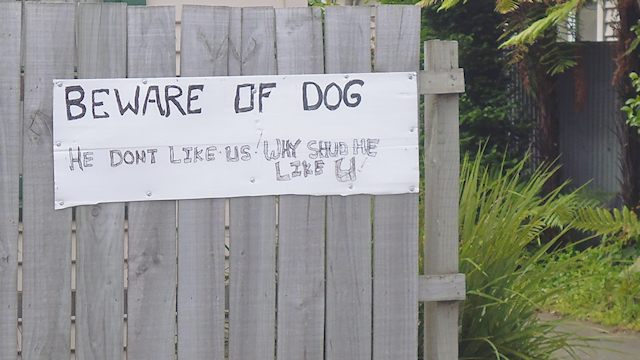 BEWARE OF DOG
HE DONT LIKE US WHY SHUD HE
LIKE U